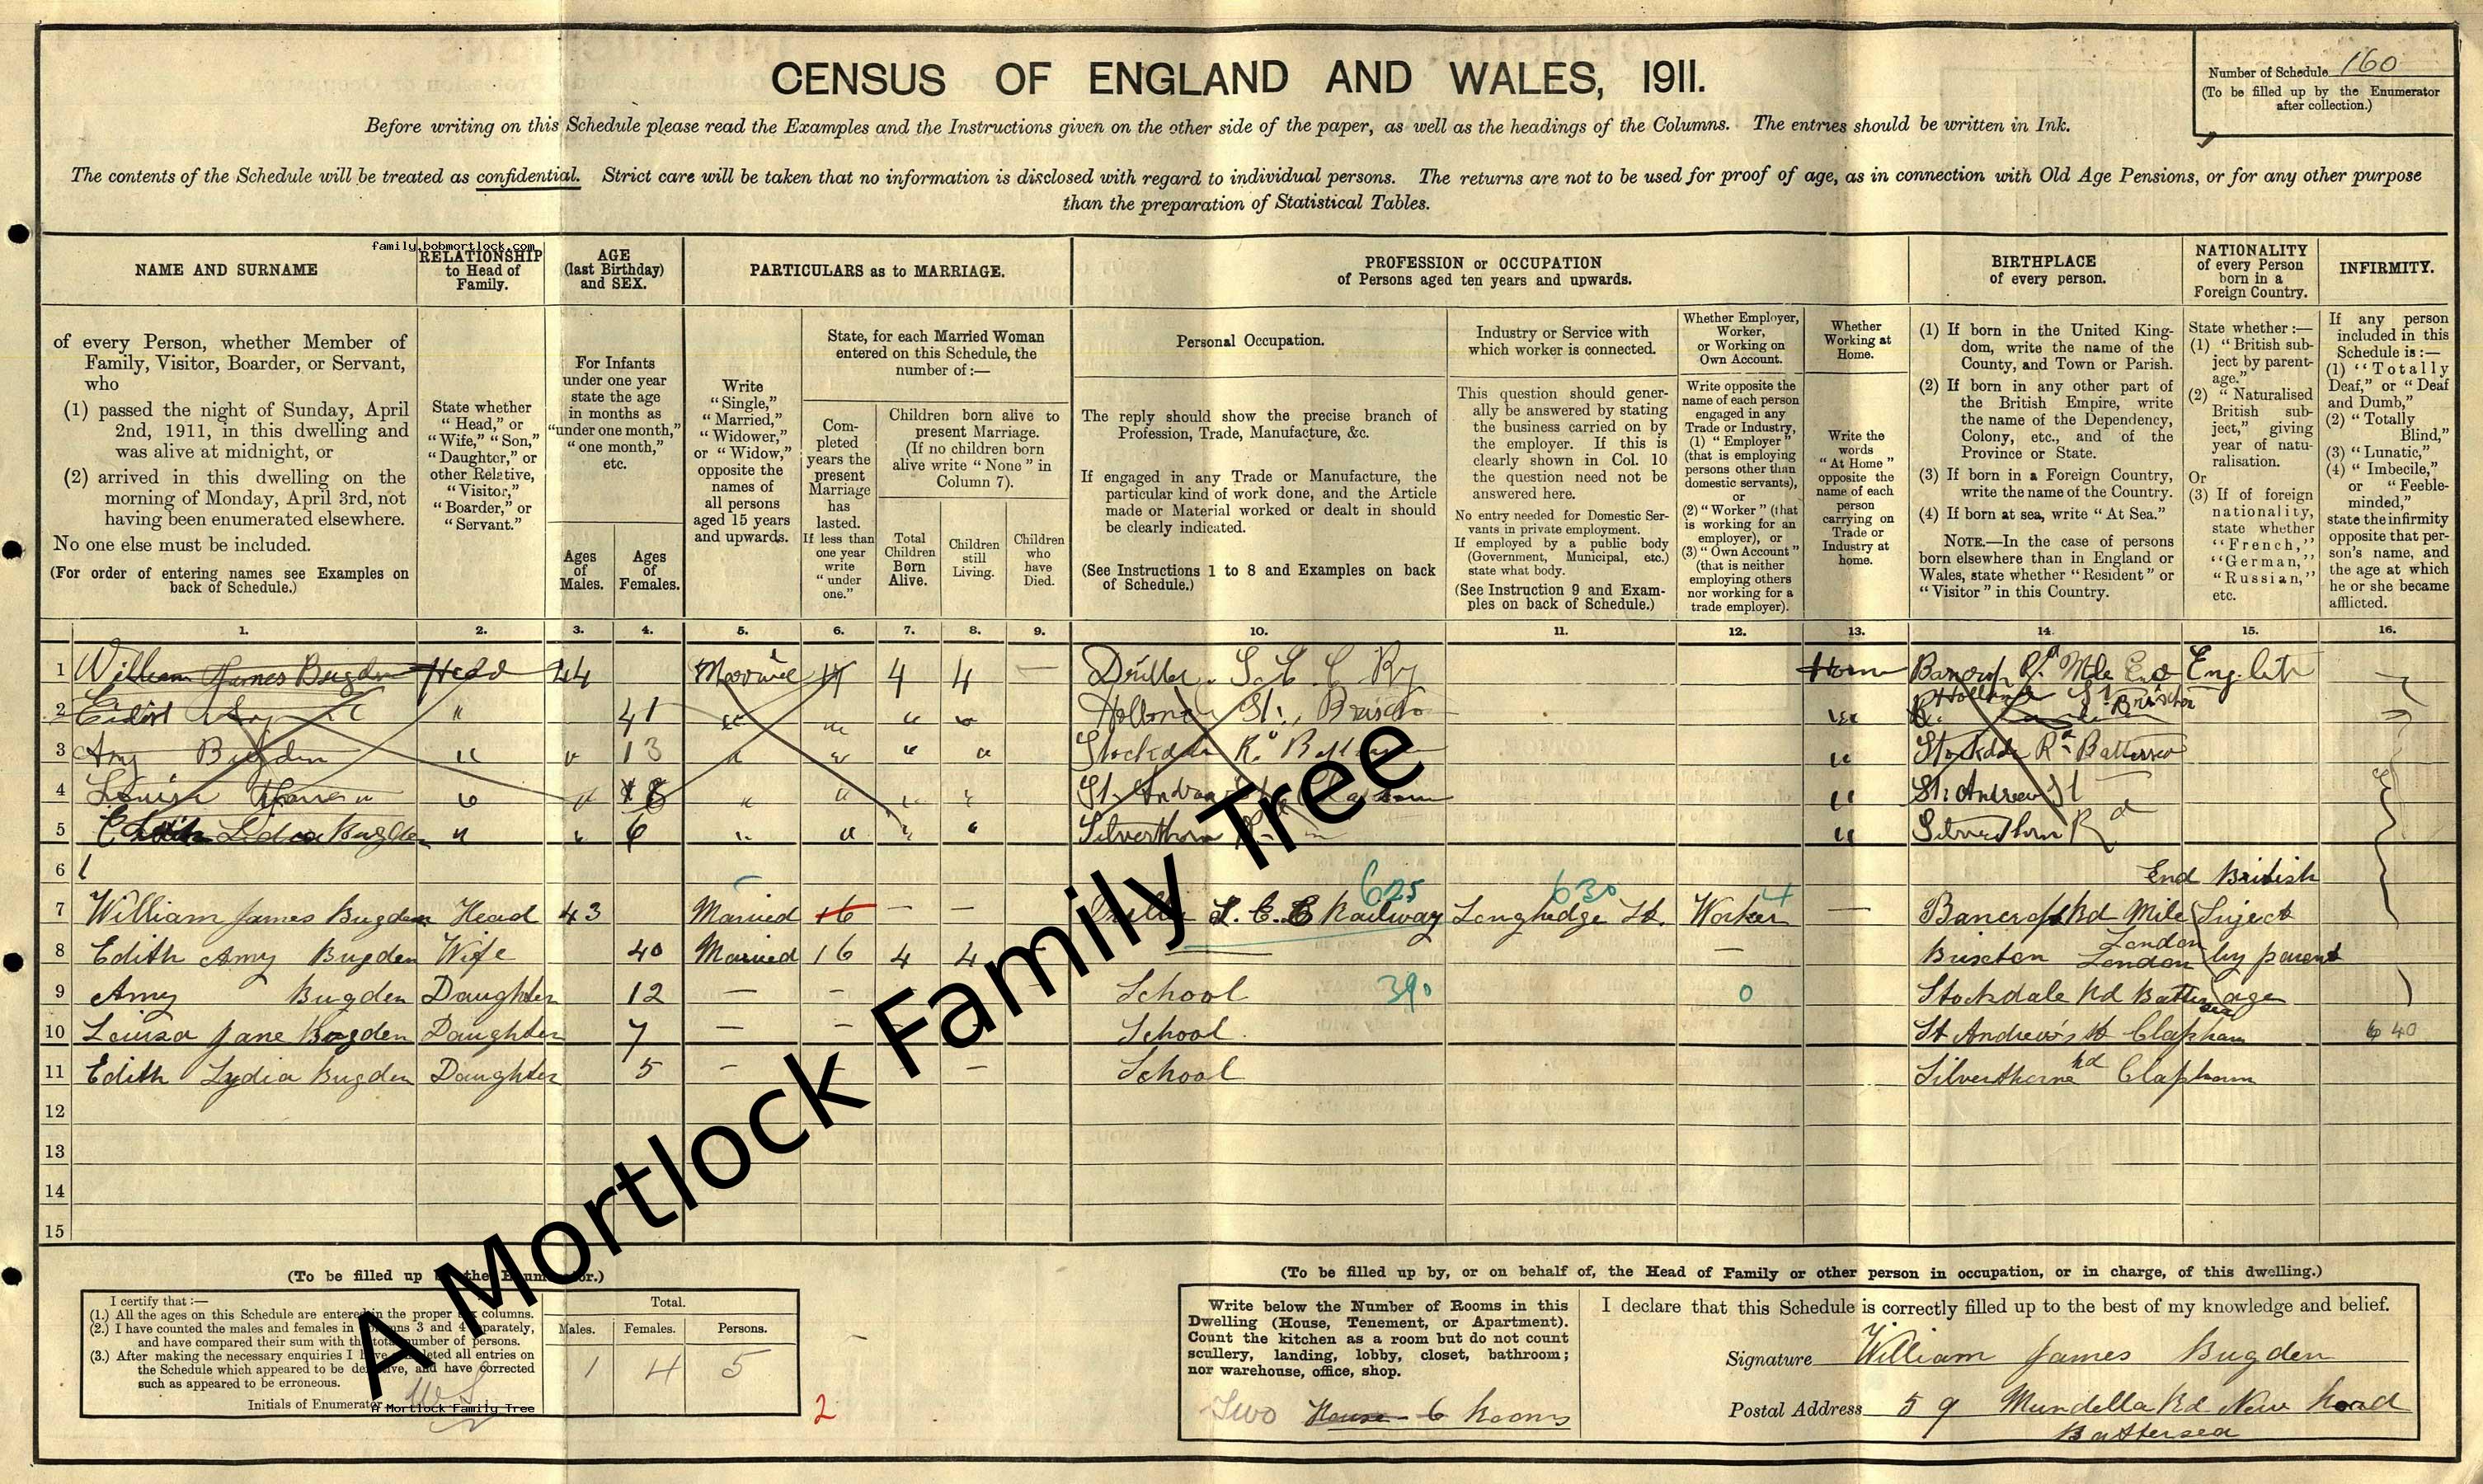 CENSUS OF ENGLAND AND WALES, 1911.
Number of Schedule 160
(To be filled up by the Enumerator
after collection.)
Before writing on this Schedule please read the Examples and the Instructions given on the other side of the paper, as well as the headings of the Columns. The entries should be written in Ink.
The contents of the Schedule will be treated as confidential. Strict care will be taken that no information is disclosed with regard to individual persons. The returns are not to be used for proof of age, as in connection with Old Age Pensions, or for any other purpose
than the preparation of Statistical Tables.
family.bobmortlock.com
NAME AND SURNAME
of every Person, whether Member of
Family, Visitor, Boarder, or Servant,
who
(1) passed the night of Sunday, April
2nd, 1911, in this dwelling and
was alive at midnight, or
(2) arrived in this dwelling on the
morning of Monday, April 3rd, not
having been enumerated elsewhere.
No one else must be included.
(For order of entering names see Examples on
back of Schedule.)
RELATIONSHIP
to Head of
Family.
State whether
"Head," or
"Wife," "Son,"
"Daughter," or
other Relative,
"Visitor,"
"Boarder," or
"Servant."
AGE
(last Birthday)
and SEX.
For Infants
under one year
state the age
in months as
"under one month,"
"one month,"
etc.
Ages
of
Males.
Ages
of
Females.
PARTICULARS as to MARRIAGE.
Write
"Single,"
"Married,"
"Widower,"
or "Widow,"
opposite the
names of
all persons
aged 15 years
and upwards.
State, for each Married Woman
entered on this Schedule, the
number of:—
Com-
pleted
years the
present
Marriage
has
lasted.
If less than
one year
write
"under
one."
Children born alive to
present Marriage.
(If no children born
alive write "None" in
Column 7).
Total
Children
Born
Alive.
Children
still
Living.
Children
who
have
Died.
PROFESSION or OCCUPATION
of Persons aged ten years and upwards.
Personal Occupation.
The reply should show the precise branch of
Profession, Trade, Manufacture, &c.
If engaged in any Trade or Manufacture, the
particular kind of work done, and the Article
made or Material worked or dealt in should
be clearly indicated.
(See Instructions 1 to 8 and Examples on back
of Schedule.)
Industry or Service with
which worker is connected.
This question should gener-
ally be answered by stating
the business carried on by
the employer. If this is
clearly shown in Col. 10
the question need not be
answered here.
No entry needed for Domestic Ser-
vants in private employment.
If employed by a public body
(Government, Municipal, etc.)
state what body.
(See Instruction 9 and Exam-
ples on back of Schedule.)
Whether Employer,
Worker,
or Working on
Own Account.
Write opposite the
name of each person
engaged in any
Trade or Industry,
(1) "Employer"
(that is employing
persons other than
domestic servants),
or
(2) "Worker" (that
is working for an
employer), or
(3) "Own Account"
(that is neither
employing others
nor working for a
trade employer).
Whether
Working at
Home.
Write the
words
"At Home"
opposite the
name of each
person
carrying on
Trade or
Industry at
home.
BIRTHPLACE
of every person.
(1) If born in the United King-
dom, write the name of the
County, and Town or Parish.
(2) If born in any other part of
the British Empire, write
the name of the Dependency,
Colony, etc., and of the
Province or State.
(3) If born in a Foreign Country,
write the name of the Country.
(4) If born at sea, write "At Sea."
NOTE.—In the case of persons
born elsewhere than in England or
Wales, state whether "Resident" or
"Visitor" in this Country.
NATIONALITY
of every Person
born in a
Foreign Country.
State whether:—
(1) "British sub-
ject by parent-
age."
(2) "Naturalised
British sub-
ject," giving
year of natu-
ralisation.
Or
(3) If of foreign
nationality,
state whether
"French,"
"German,"
"Russian,"
etc.
INFIRMITY.
If any person
included in this
Schedule is:—
(1) "Totally
Deaf," or "Deaf
and Dumb,"
(2) "Totally
Blind,"
(3) "Lunatic,"
(4) "Imbecile,"
or "Feeble-
minded,"
state the infirmity
opposite that per-
son's name, and
the age at which
he or she became
afflicted.
1. 2. 3. 4. 5. 6. 7. 8. 9. 10. 11. 12. 13. 14. 15. 16.
1 William James Bugden Head 44 4 4 — Driller Home Bancroft Rd Mile End
2 " 41 " " " " St.
3 Amy Bugden " " 13 " " " " " Stockdale Rd Battersea
4 Louisa " " 8 " " " " " St. Andrew St
5 Edith Lidia Bugden " " 6 " " " " Silverthorn Rd " Silverthorn Rd
6 End British
625 630 4
7 William James Bugden Head 43 Married 16 — — Railway Longhedge St. Worker — Bancroft Rd Mile Suject
London
8 Edith Amy Bugden Wife 40 Married 16 4 4 — Brixton London by parent
9 Amy Bugden Daughter 12 — — School 390 0 Stockdale Rd Battersea age
10 Louisa Jane Bugden Daughter 7 — — School St Andrew's St Clapham 640
11 Edith Lydia Bugden Daughter 5 — — School Silverthorne Rd Clapham
12
13
14
15
A Mortlock Family Tree
(To be filled up by the Enumerator.)
I certify that:—
(1.) All the ages on this Schedule are entered in the proper sex columns.
(2.) I have counted the males and females in Columns 3 and 4 separately,
and have compared their sum with the total number of persons.
(3.) After making the necessary enquiries I have completed all entries on
the Schedule which appeared to be defective, and have corrected
such as appeared to be erroneous.
Initials of Enumerator
A Mortlock Family Tree
Total.
Males. Females. Persons.
1 4 5
2
(To be filled up by, or on behalf of, the Head of Family or other person in occupation, or in charge, of this dwelling.)
Write below the Number of Rooms in this
Dwelling (House, Tenement, or Apartment).
Count the kitchen as a room but do not count
scullery, landing, lobby, closet, bathroom;
nor warehouse, office, shop.
Two House - 6 Rooms
I declare that this Schedule is correctly filled up to the best of my knowledge and belief.
Signature William James Bugden
Postal Address 59 Mundella Rd New Road
Battersea